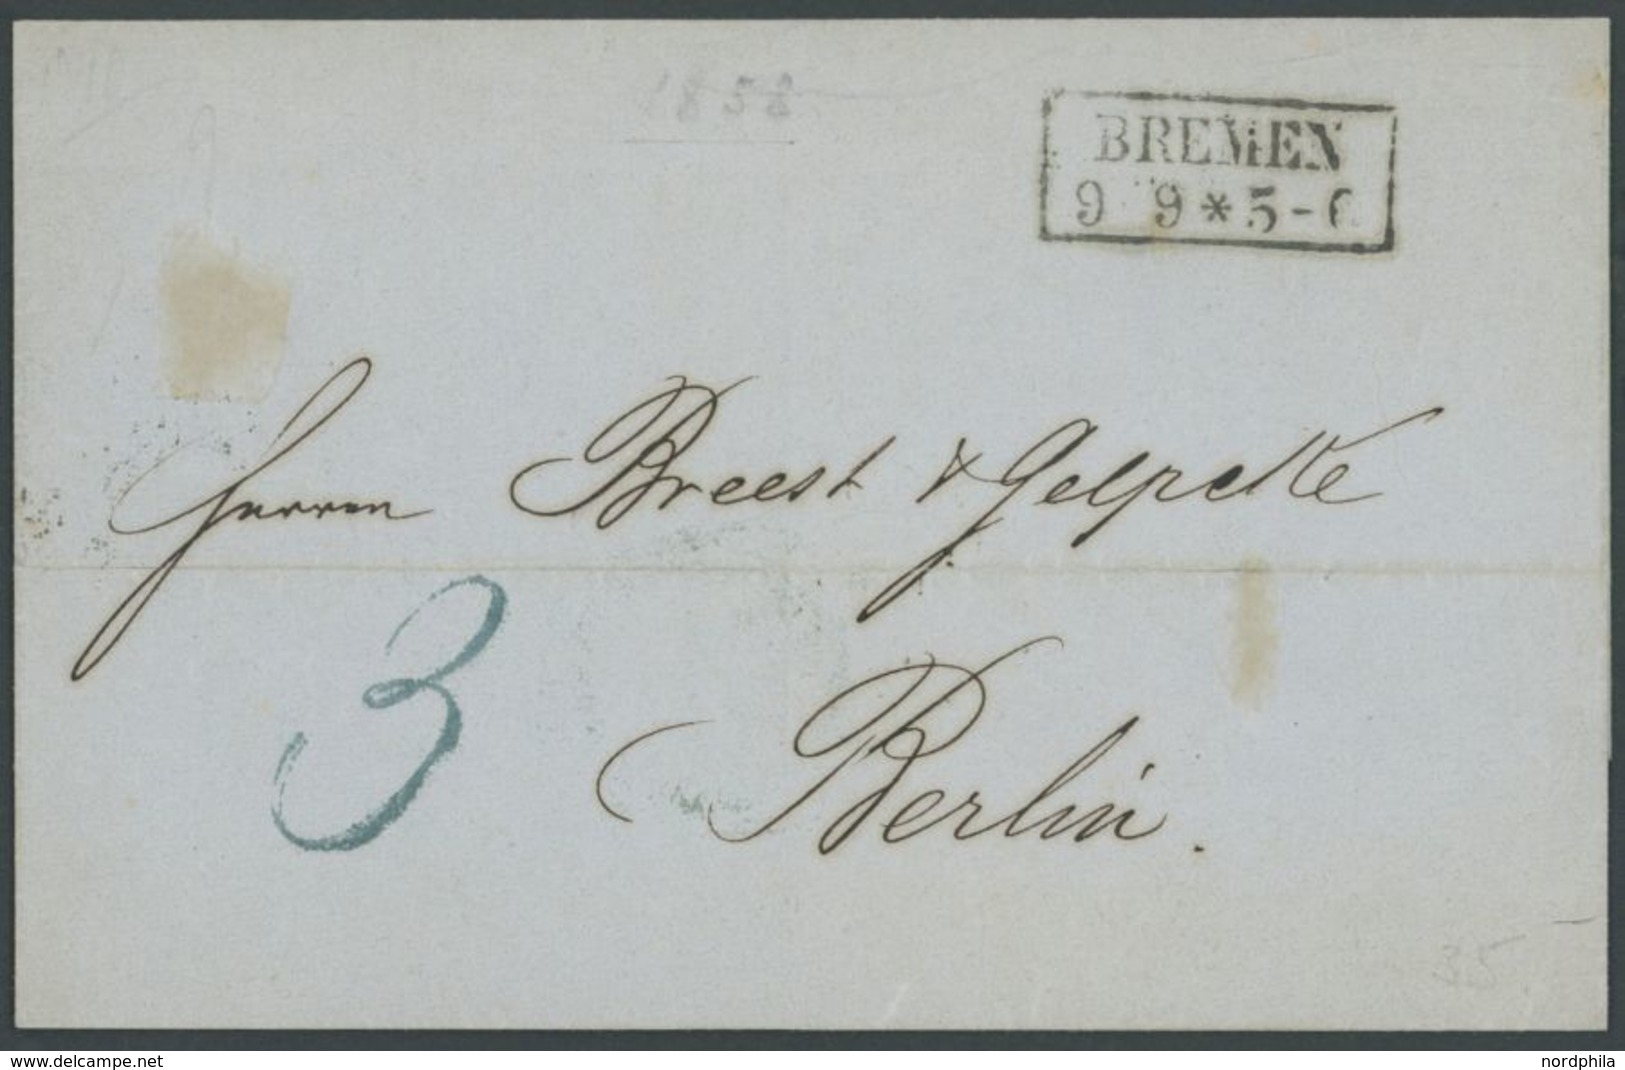 1858
BREMEN
9 9 * 5-6
Herren Breest & Gelpcke
3
Berlin.
35
www.delcampe.net
nordphila